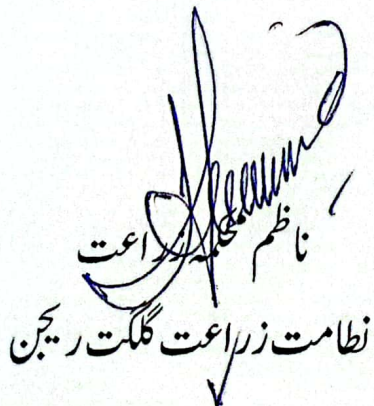 ناظم محکمہ زراعت
نظامت زراعت گلگت ریجن